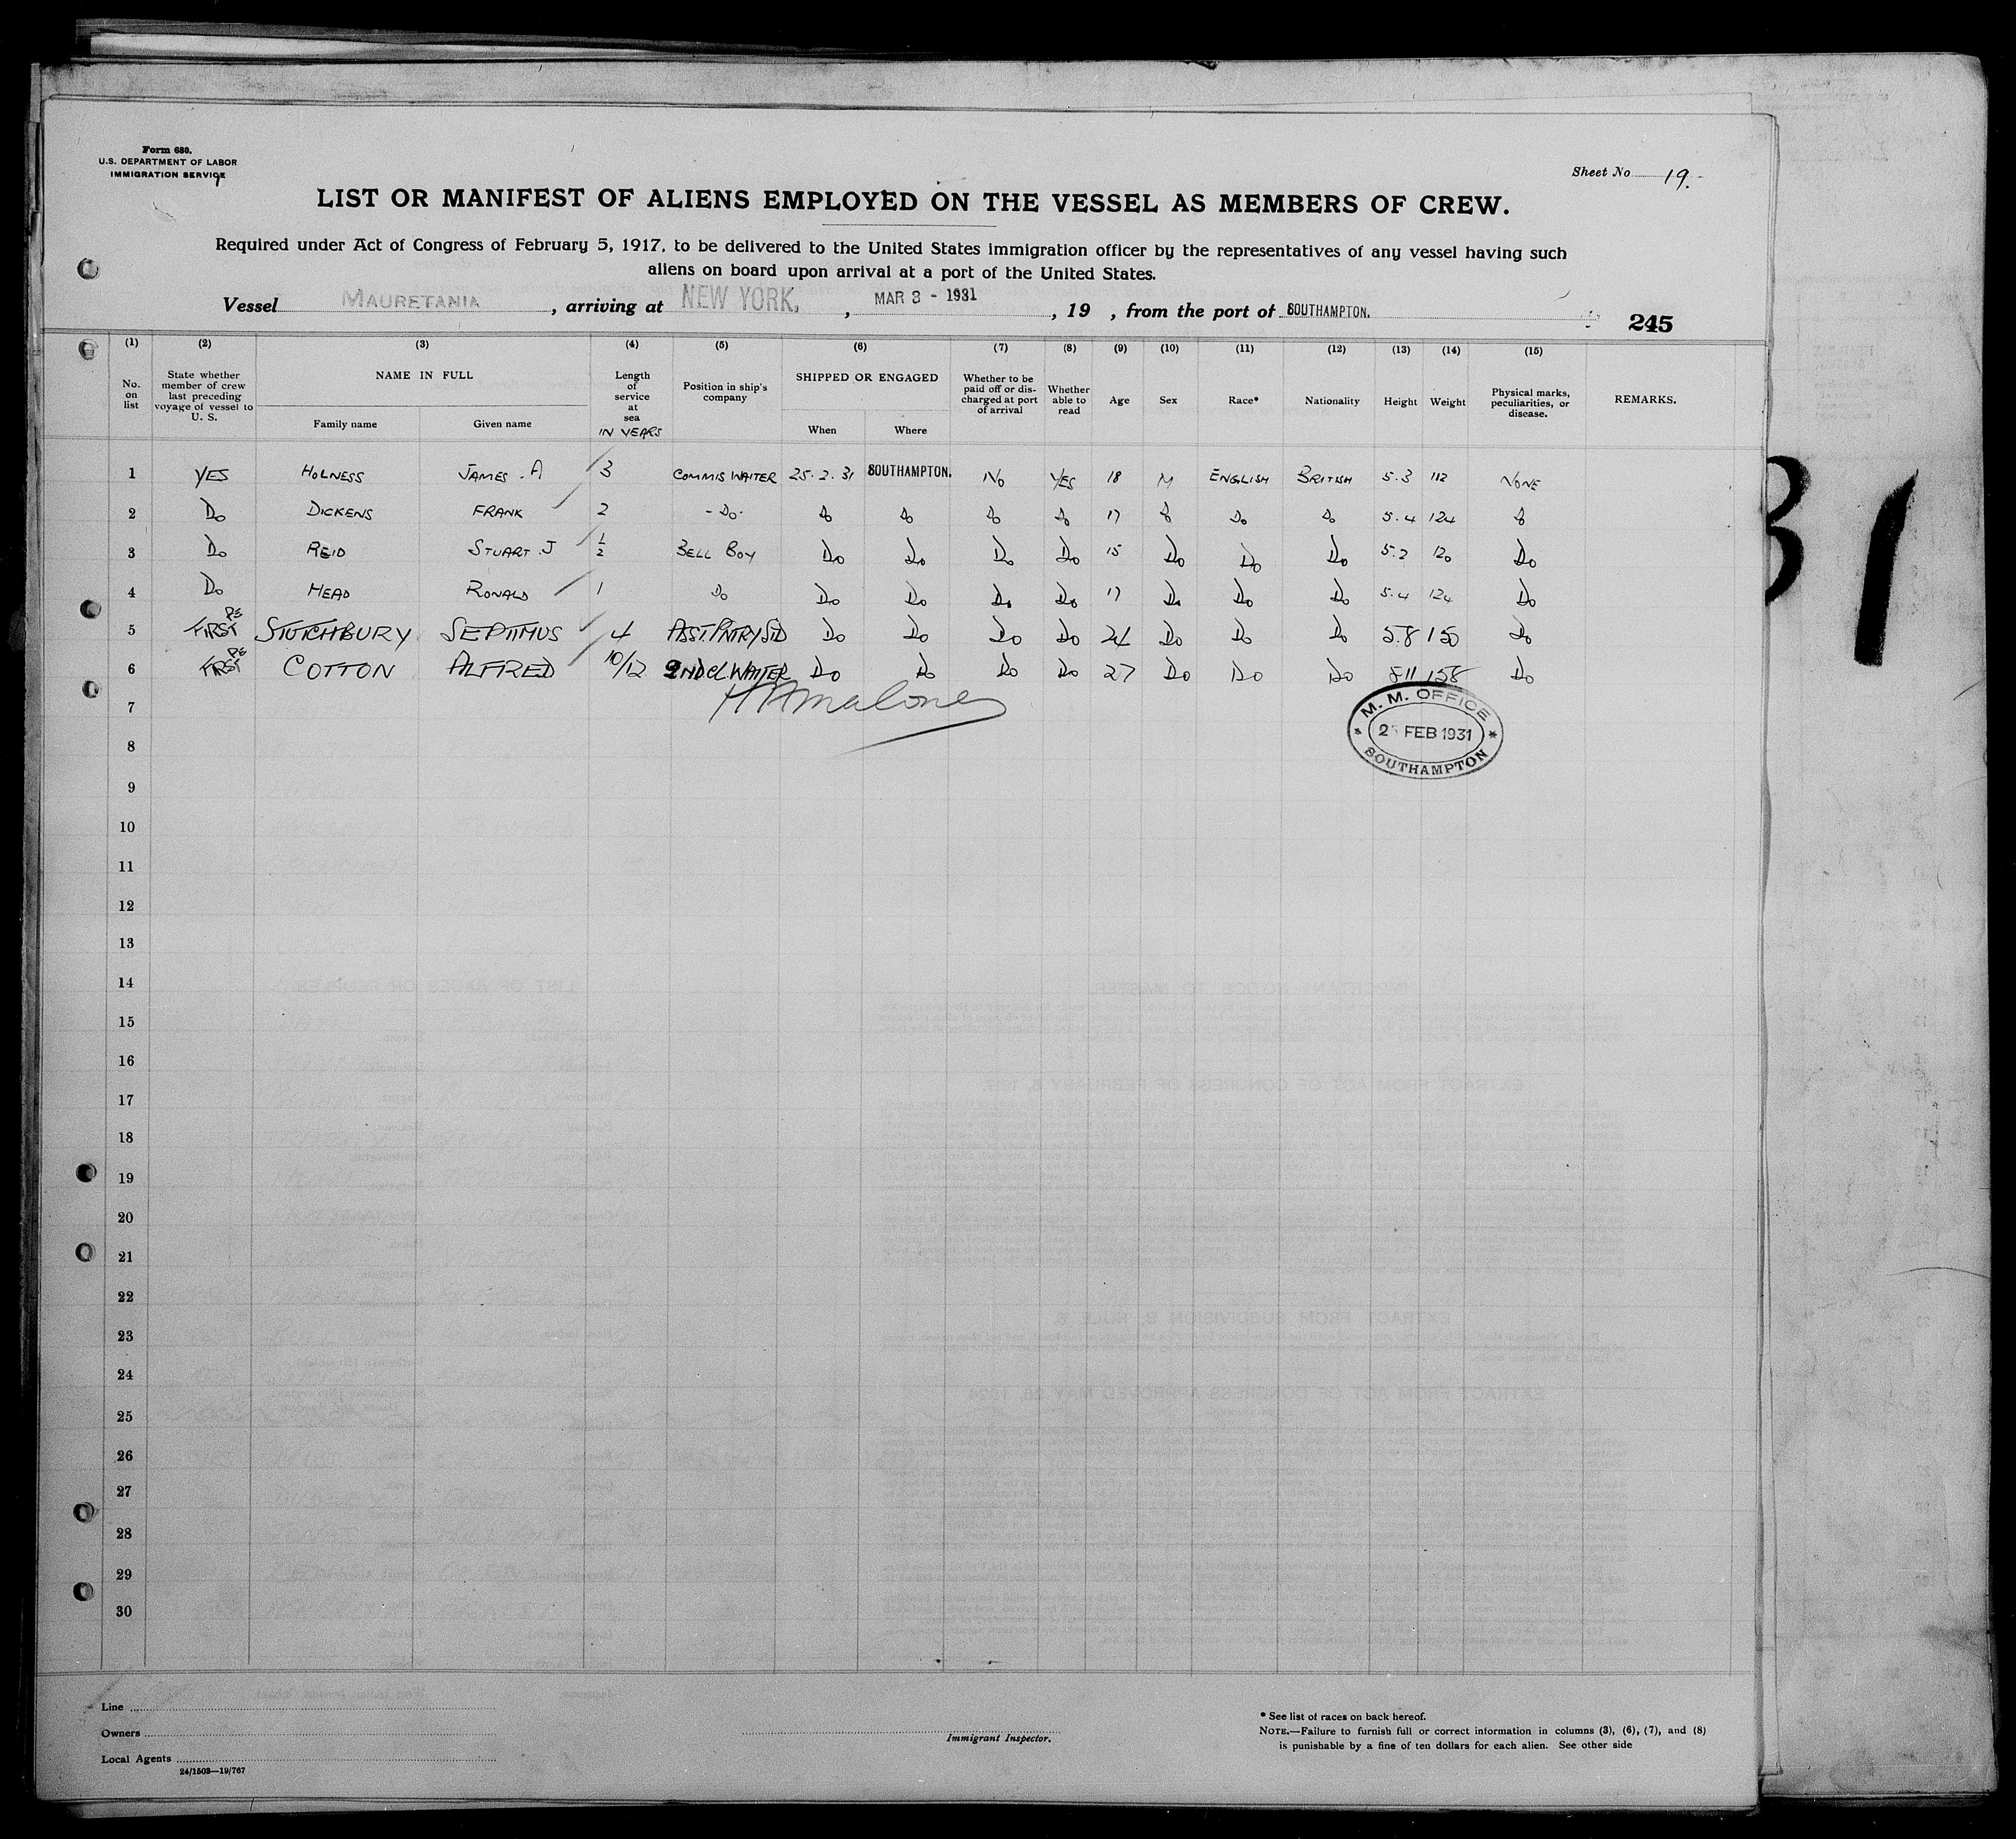 Form 680.
U.S. DEPARTMENT OF LABOR
IMMIGRATION SERVICE
Sheet No 19.
LIST OR MANIFEST OF ALIENS EMPLOYED ON THE VESSEL AS MEMBERS OF CREW.
Required under Act of Congress of February 5, 1917, to be delivered to the United States immigration officer by the representatives of any vessel having such
aliens on board upon arrival at a port of the United States.
Vessel MAURETANIA, arriving at NEW YORK, , MAR 3 - 1931, 19 , from the port of SOUTHAMPTON.
245
(1) (2) (3) (4) (5) (6) (7) (8) (9) (10) (11) (12) (13) (14) (15)
No. on list
State whether member of crew last preceding voyage of vessel to U. S.
NAME IN FULL
Family name
Given name
Length of service at sea IN YEARS
Position in ship's company
SHIPPED OR ENGAGED
When
Where
Whether to be paid off or discharged at port of arrival
Whether able to read
Age
Sex
Race*
Nationality
Height
Weight
Physical marks, peculiarities, or disease.
REMARKS.
1 YES HOLNESS JAMES . A 3 COMMIS WAITER 25. 2. 31 SOUTHAMPTON. NO YES 18 M ENGLISH BRITISH 5.3 112 NONE
2 Do DICKENS FRANK 2 - Do - Do Do Do Do 17 Do Do Do 5.4 124 Do
3 Do REID STUART . J 1/2 BELL BOY Do Do Do Do 15 Do Do Do 5.2 120 Do
4 Do HEAD RONALD 1 Do Do Do Do Do 17 Do Do Do 5.4 124 Do
5 FIRST STUTCHBURY SEPTIMUS 4 ASST. PNTRY STD Do Do Do Do 24 Do Do Do 5.8 150 Do
6 FIRST COTTON ALFRED 10/12 2ND CL WAITER Do Do Do Do 27 Do Do Do 5 11 158 Do
7
Malone
M. M. OFFICE
FEB 1931
SOUTHAMPTON
8
9
10
11
12
13
14
15
16
17
18
19
20
21
22
23
24
25
26
27
28
29
30
Line
Owners
Local Agents
24/1503—19/767
Immigrant Inspector.
* See list of races on back hereof.
NOTE.—Failure to furnish full or correct information in columns (3), (6), (7), and (8)
is punishable by a fine of ten dollars for each alien. See other side
31